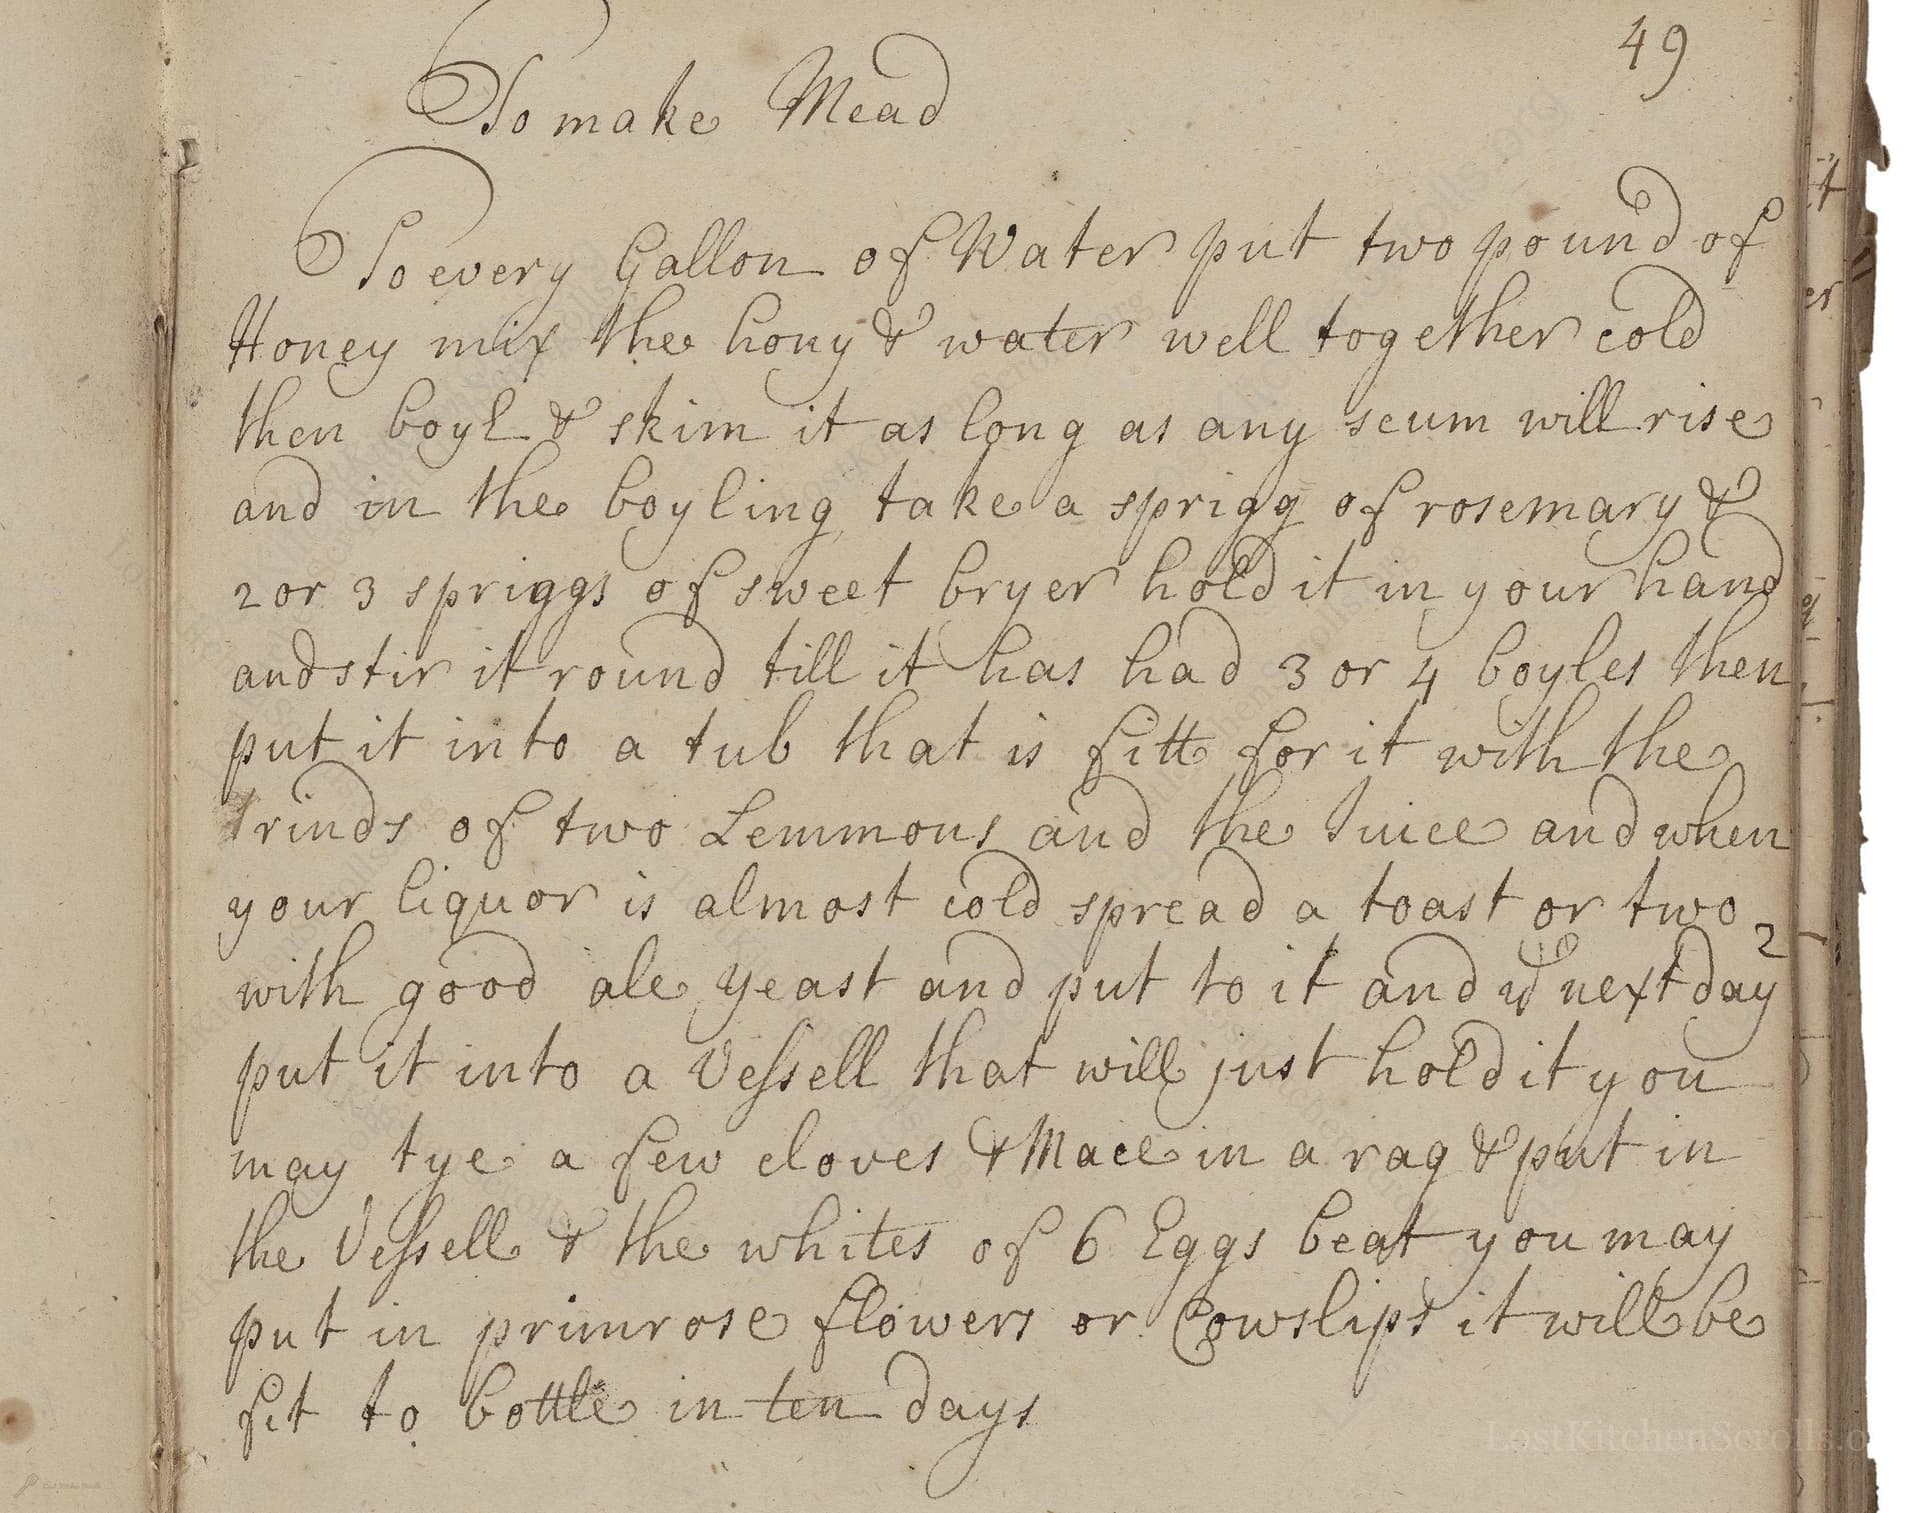 49
To make Mead
To every Gallon of Water put two pound of
Honey mix the hony & water well together cold
then boyl & skim it as long as any scum will rise
and in the boyling take a sprigg of rosemary &
2 or 3 spriggs of sweet bryer hold it in your hand
and stir it round till it has had 3 or 4 boyles then
put it into a tub that is fitt for it with the
rinds of two Lemmons and the Juice and when
your liquor is almost cold spread a toast or two
with good ale yeast and put to it and ye next day
put it into a Vessell that will just hold it you
may tye a few cloves & Mace in a rag & put in
the Vessell & the whites of 6 Eggs beat you may
put in primrose flowers or Cowslips it will be
fit to bottle in ten days
LostKitchenScrolls.o